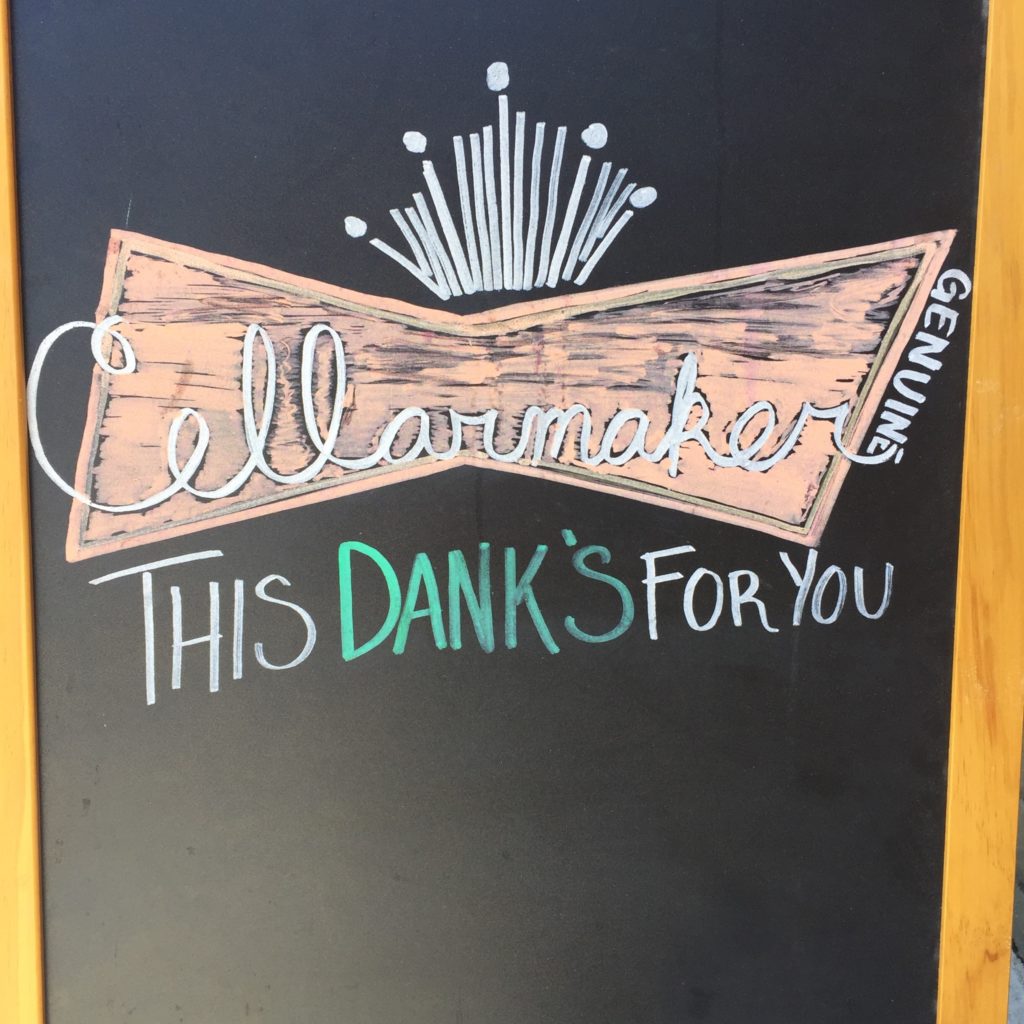 Cellarmaker
GENUINE
THIS DANK'S FOR YOU